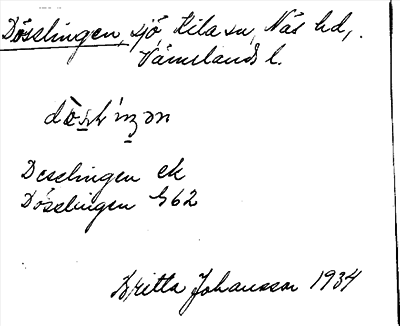 Dösslingen, sjö, Kila sn, Näs hd,
Värmlands l.
Desslingen ek
Dösslingen G62
Britta Johansson 1934